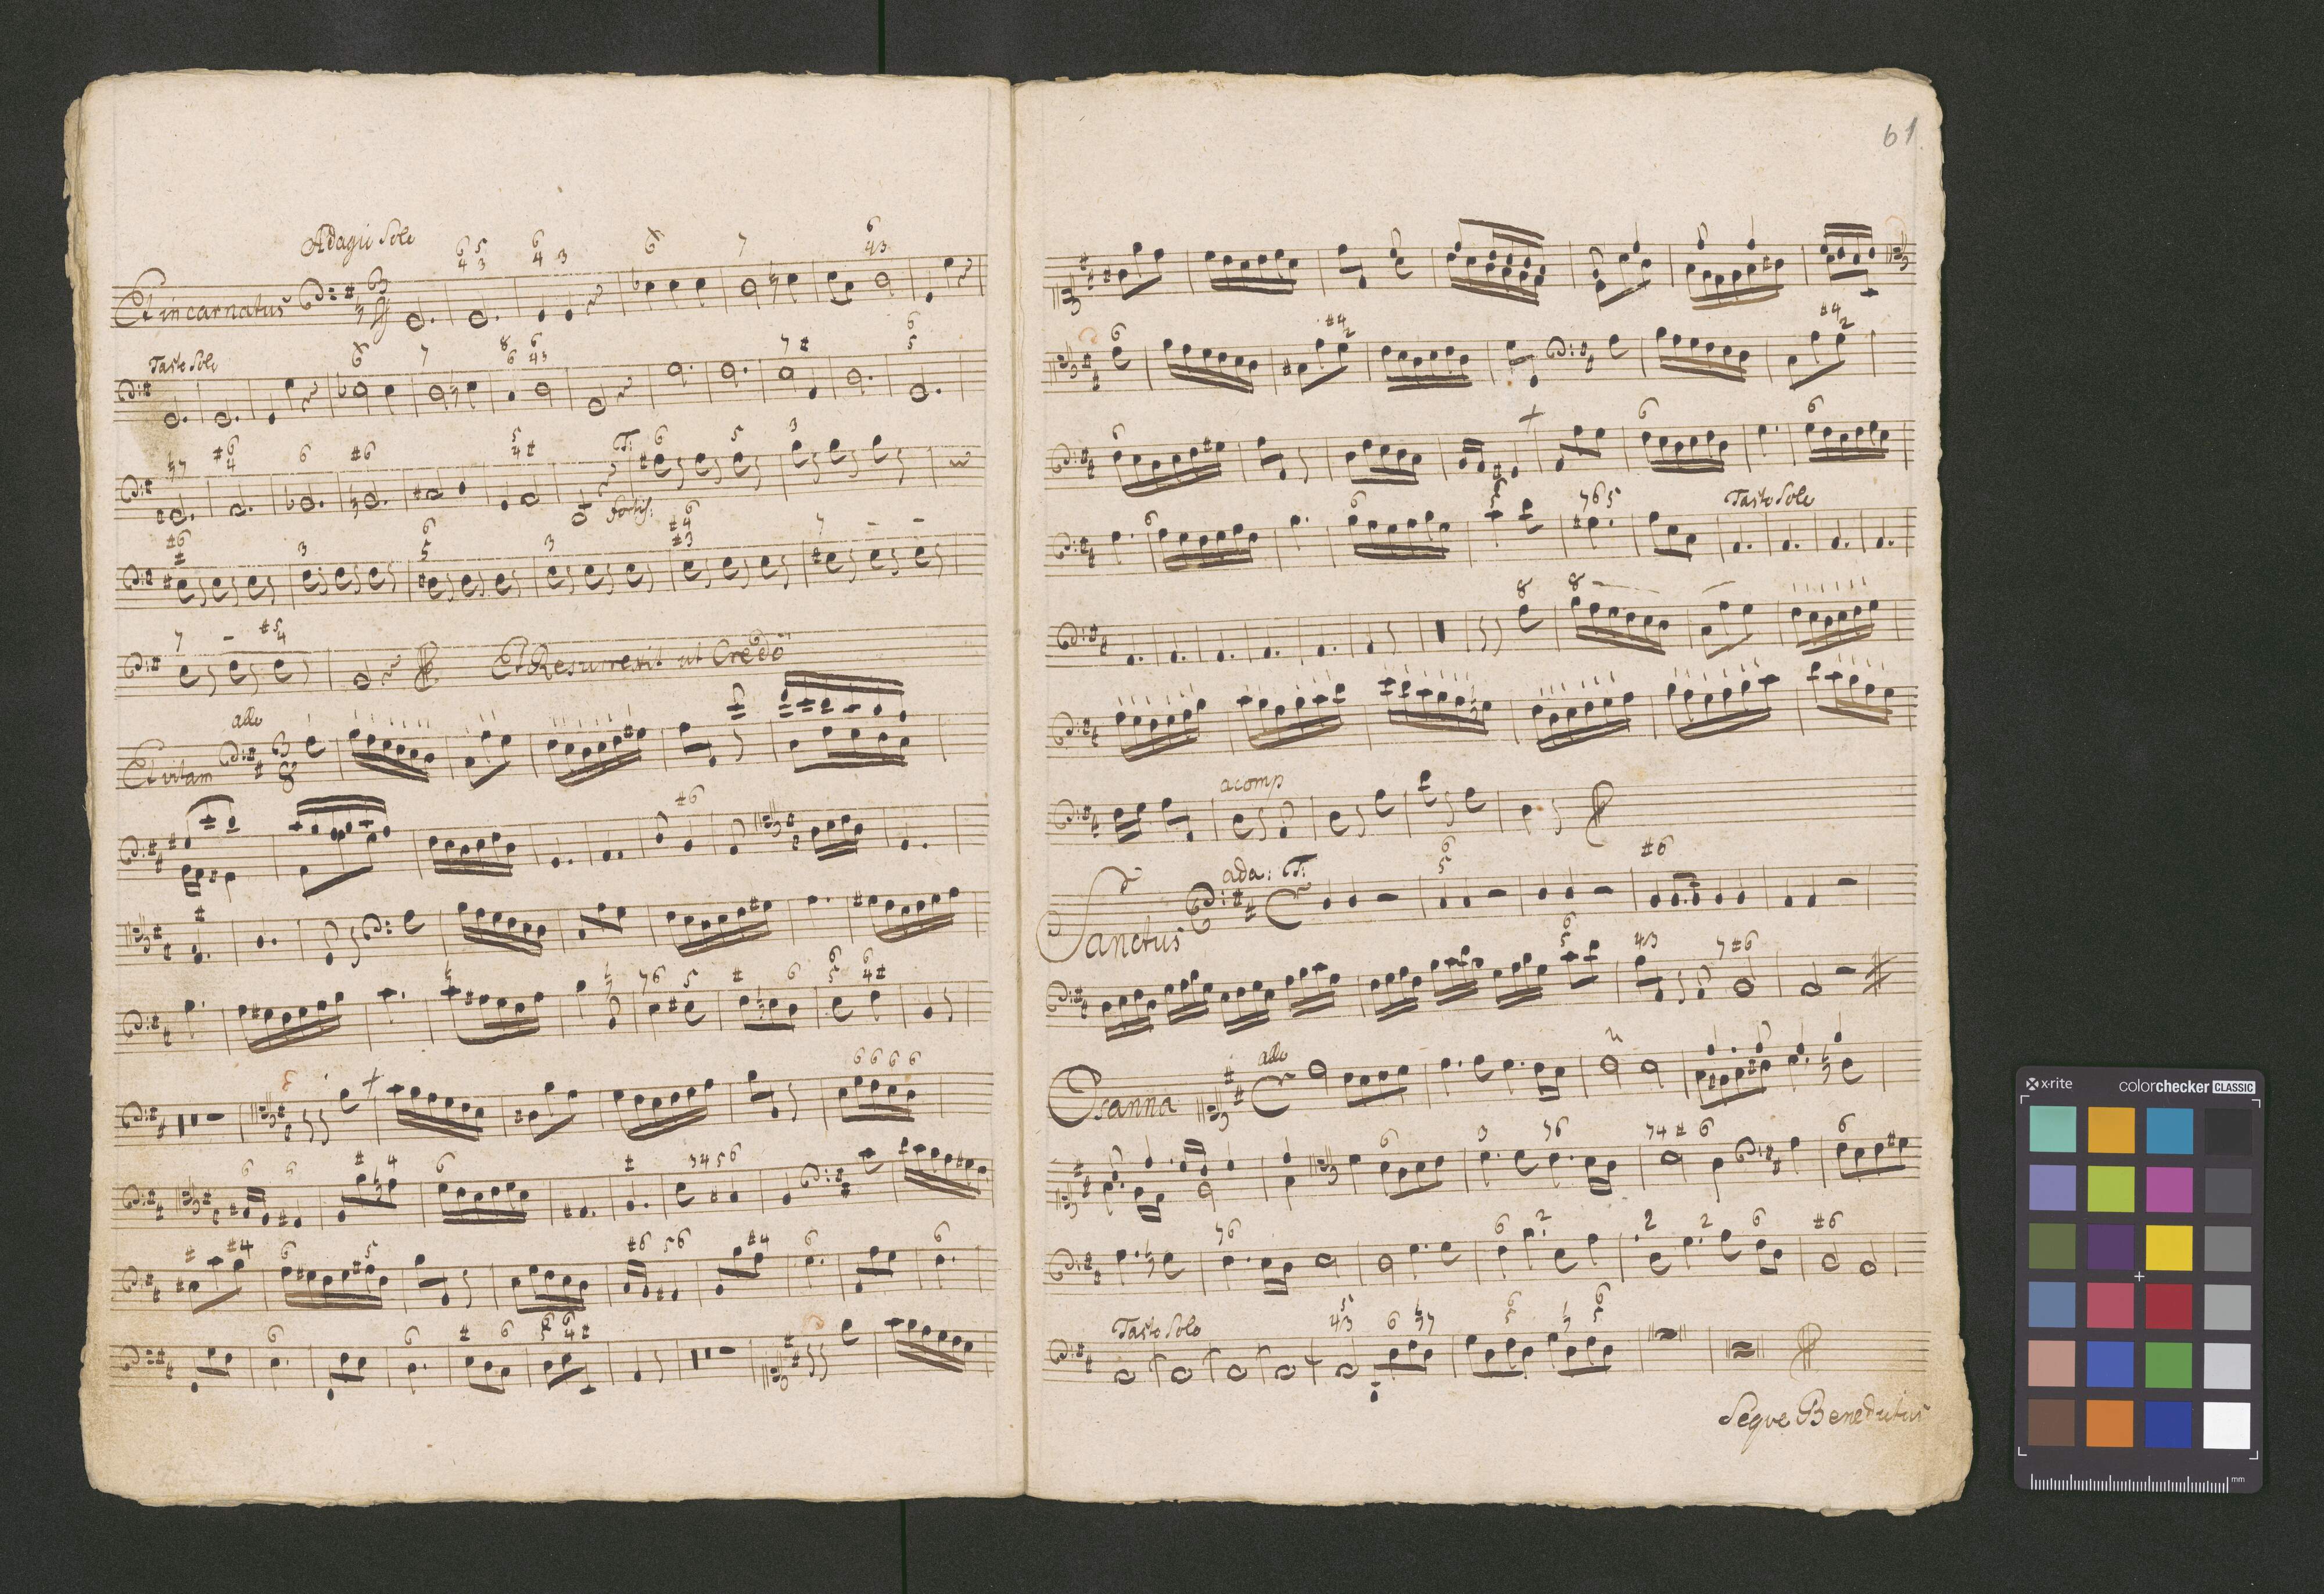 Adagio Solo
Et incarnatus
Taste Solo
T:
fortiss:
Et Resurrexit ut Credo
allo
Et vitam
61
Taste Solo
acomp
ada: T:
Sanctus
allo
Osanna
Taste Solo
Seque Benedictus
x-rite
colorchecker CLASSIC
mm